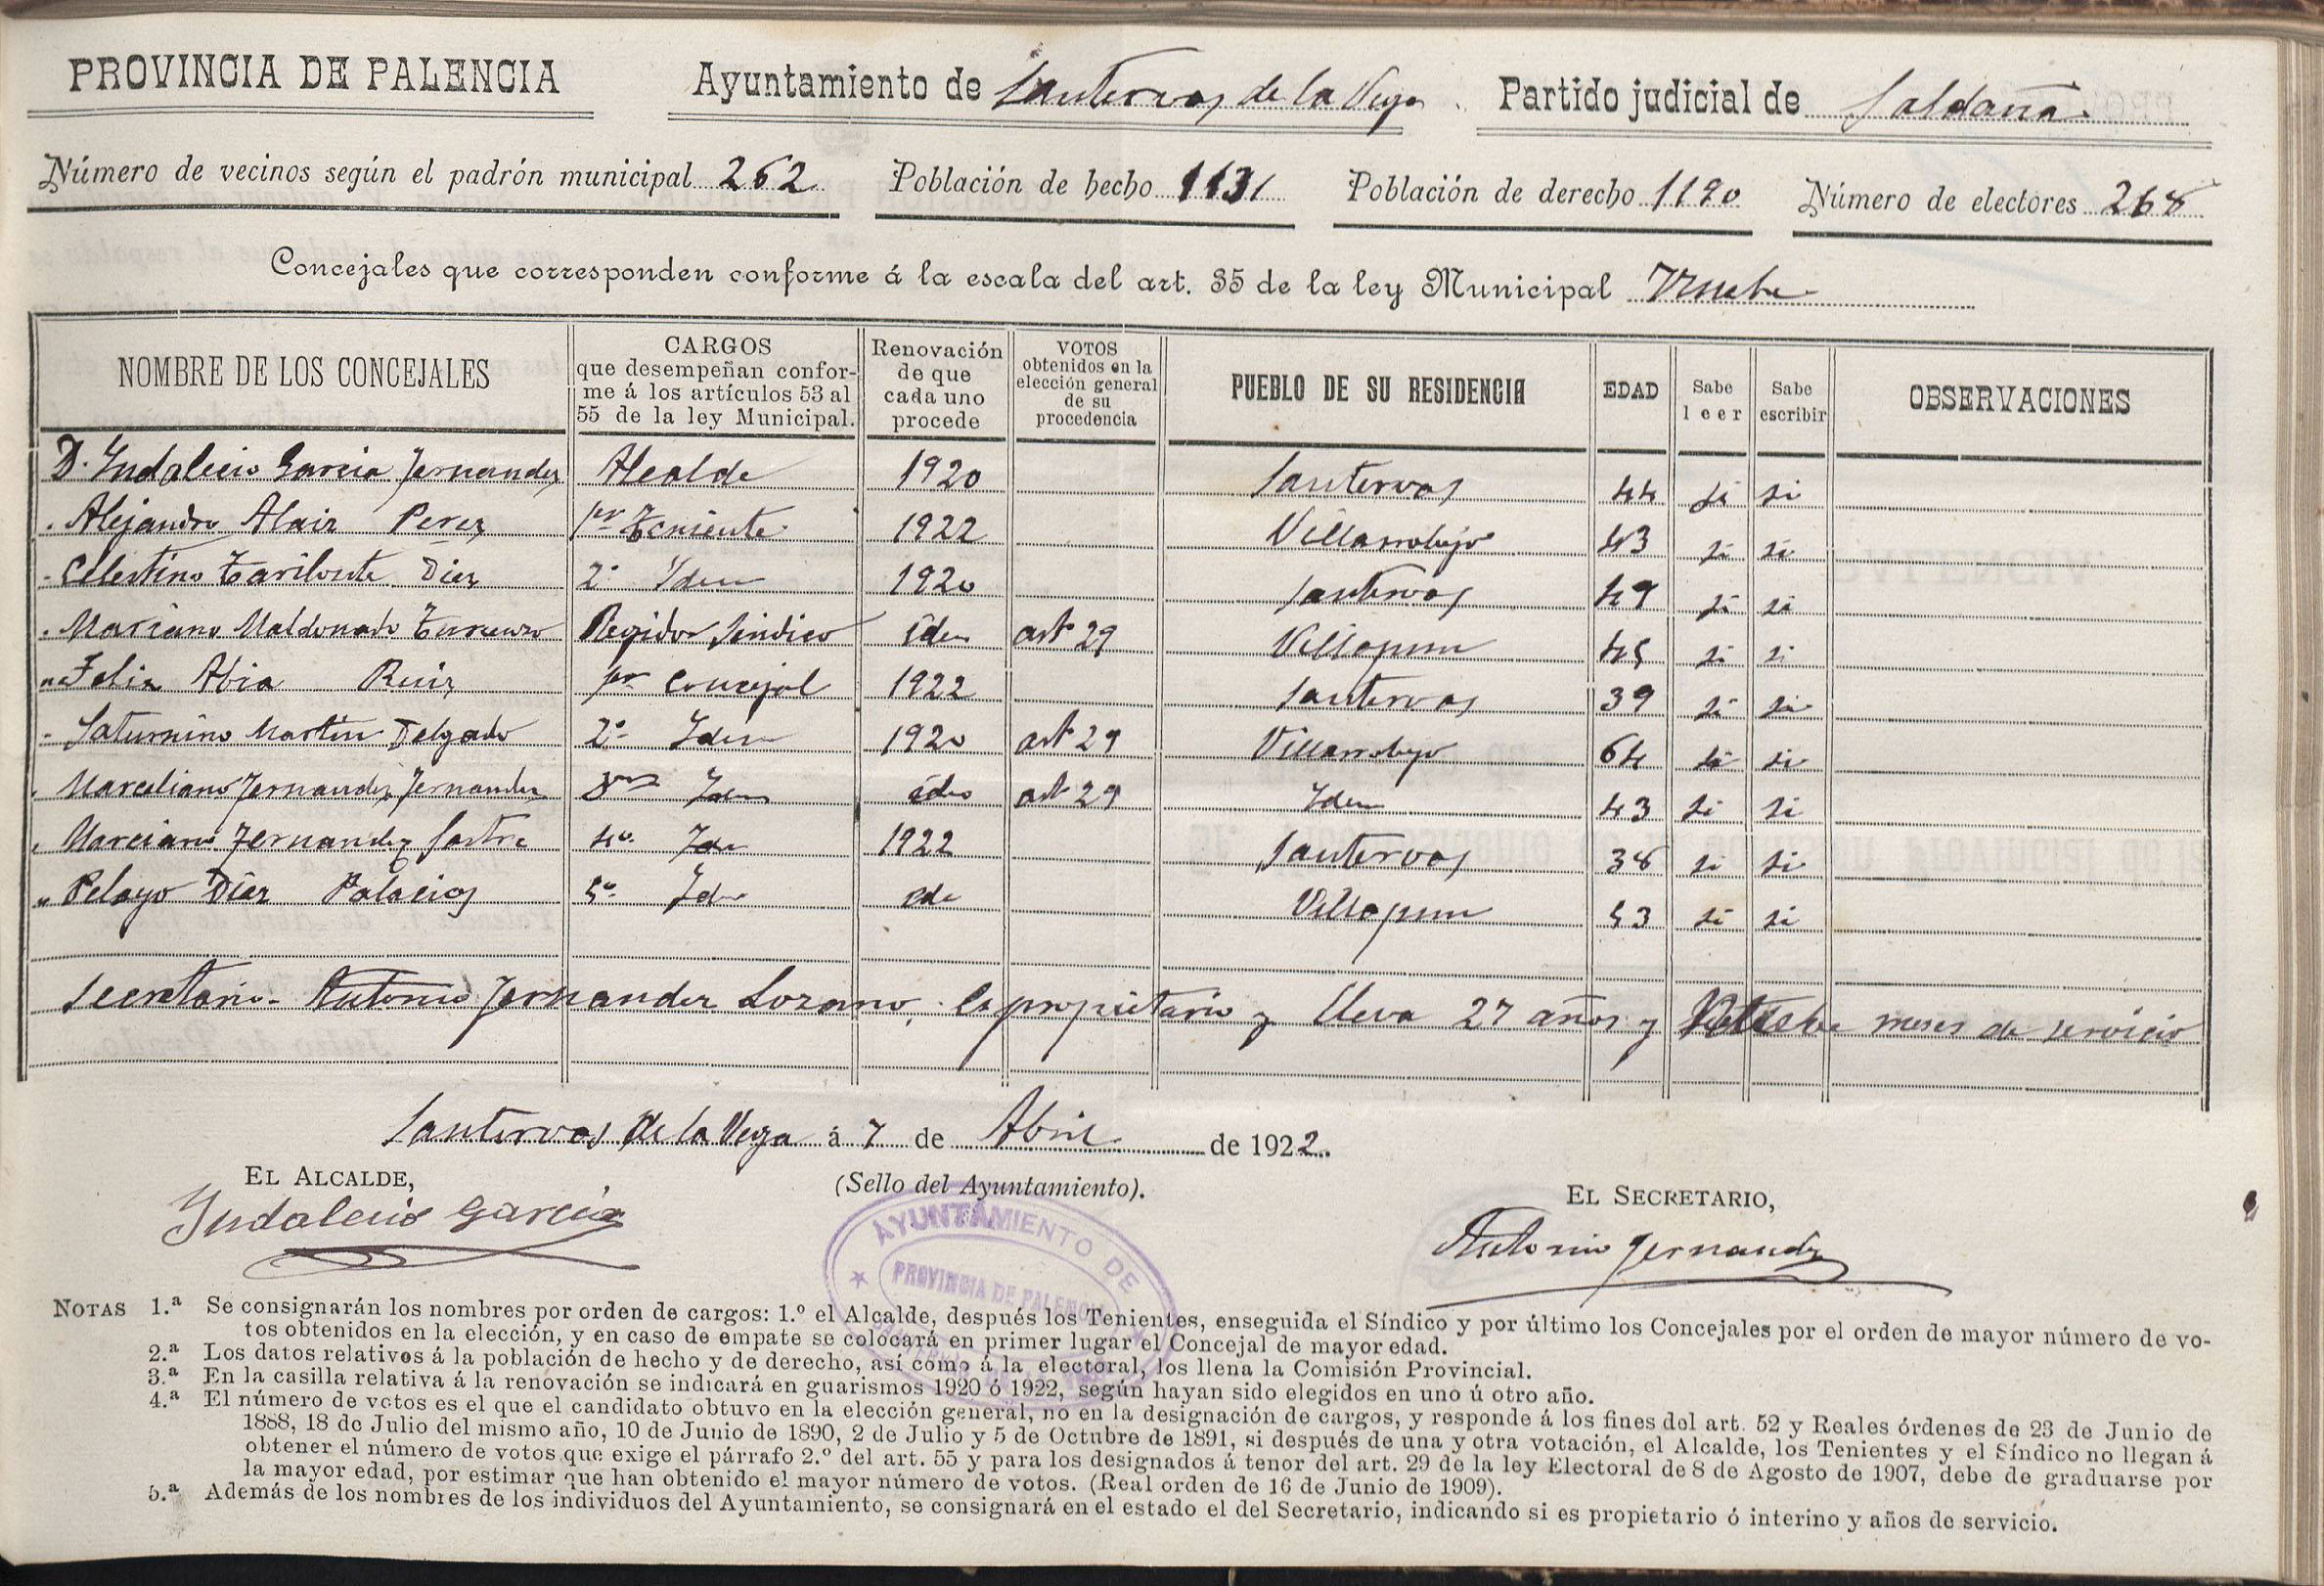 PROVINCIA DE PALENCIA Ayuntamiento de Santervas de la Vega Partido judicial de Saldaña
Número de vecinos según el padrón municipal 262 Población de hecho 1131 Población de derecho 1190 Número de electores 268
Concejales que corresponden conforme á la escala del art. 35 de la ley Municipal Nueve
NOMBRE DE LOS CONCEJALES CARGOS que desempeñan confor- me á los artículos 53 al 55 de la ley Municipal. Renovación de que cada uno procede VOTOS obtenidos en la elección general de su procedencia PUEBLO DE SU RESIDENCIA EDAD Sabe leer Sabe escribir OBSERVACIONES
D. Yndalecio Garcia Fernandez Alcalde 1920 Santervas 44 si si
Alejandro Alaiz Perez 1er Teniente 1922 Villarrobejo 43 si si
Celestino Tarilonte Diez 2º Idem 1920 Santervas 49 si si
Mariano Maldonado Regidor Sindico idem art 29 Villapun 45 si si
Felix Abia Ruiz 1er Concejal 1922 Santervas 39 si si
Saturnino Martin Delgado 2º Idem 1920 art 29 Villarrobejo 64 si si
Marceliano Fernandez Fernandez 3er Idem art 29 Idem 43 si si
Marciano Fernandez Sastre 4º Idem 1922 Santervas 38 si si
Pelayo Diez Palacios 5º Idem Villapun 53 si si
Secretario - Antonio Fernandez Lozano, es propietario y lleva 27 años y meses de servicio
Santervas de la Vega á 7 de Abril de 1922.
EL ALCALDE, (Sello del Ayuntamiento). EL SECRETARIO,
Yndalecio Garcia Antonio Fernandez
AYUNTAMIENTO DE
PROVINCIA DE PALENCIA
NOTAS 1.ª Se consignarán los nombres por orden de cargos: 1.º el Alcalde, después los Tenientes, enseguida el Síndico y por último los Concejales por el orden de mayor número de vo-
tos obtenidos en la elección, y en caso de empate se colocará en primer lugar el Concejal de mayor edad.
2.ª Los datos relativos á la población de hecho y de derecho, así como á la electoral, los llena la Comisión Provincial.
3.ª En la casilla relativa á la renovación se indicará en guarismos 1920 ó 1922, según hayan sido elegidos en uno ú otro año.
4.ª El número de votos es el que el candidato obtuvo en la elección general, no en la designación de cargos, y responde á los fines del art. 52 y Reales órdenes de 23 de Junio de
1888, 18 de Julio del mismo año, 10 de Junio de 1890, 2 de Julio y 5 de Octubre de 1891, si después de una y otra votación, el Alcalde, los Tenientes y el Síndico no llegan á
obtener el número de votos que exige el párrafo 2.º del art. 55 y para los designados á tenor del art. 29 de la ley Electoral de 8 de Agosto de 1907, debe de graduarse por
la mayor edad, por estimar que han obtenido el mayor número de votos. (Real orden de 16 de Junio de 1909).
5.ª Además de los nombres de los individuos del Ayuntamiento, se consignará en el estado el del Secretario, indicando si es propietario ó interino y años de servicio.